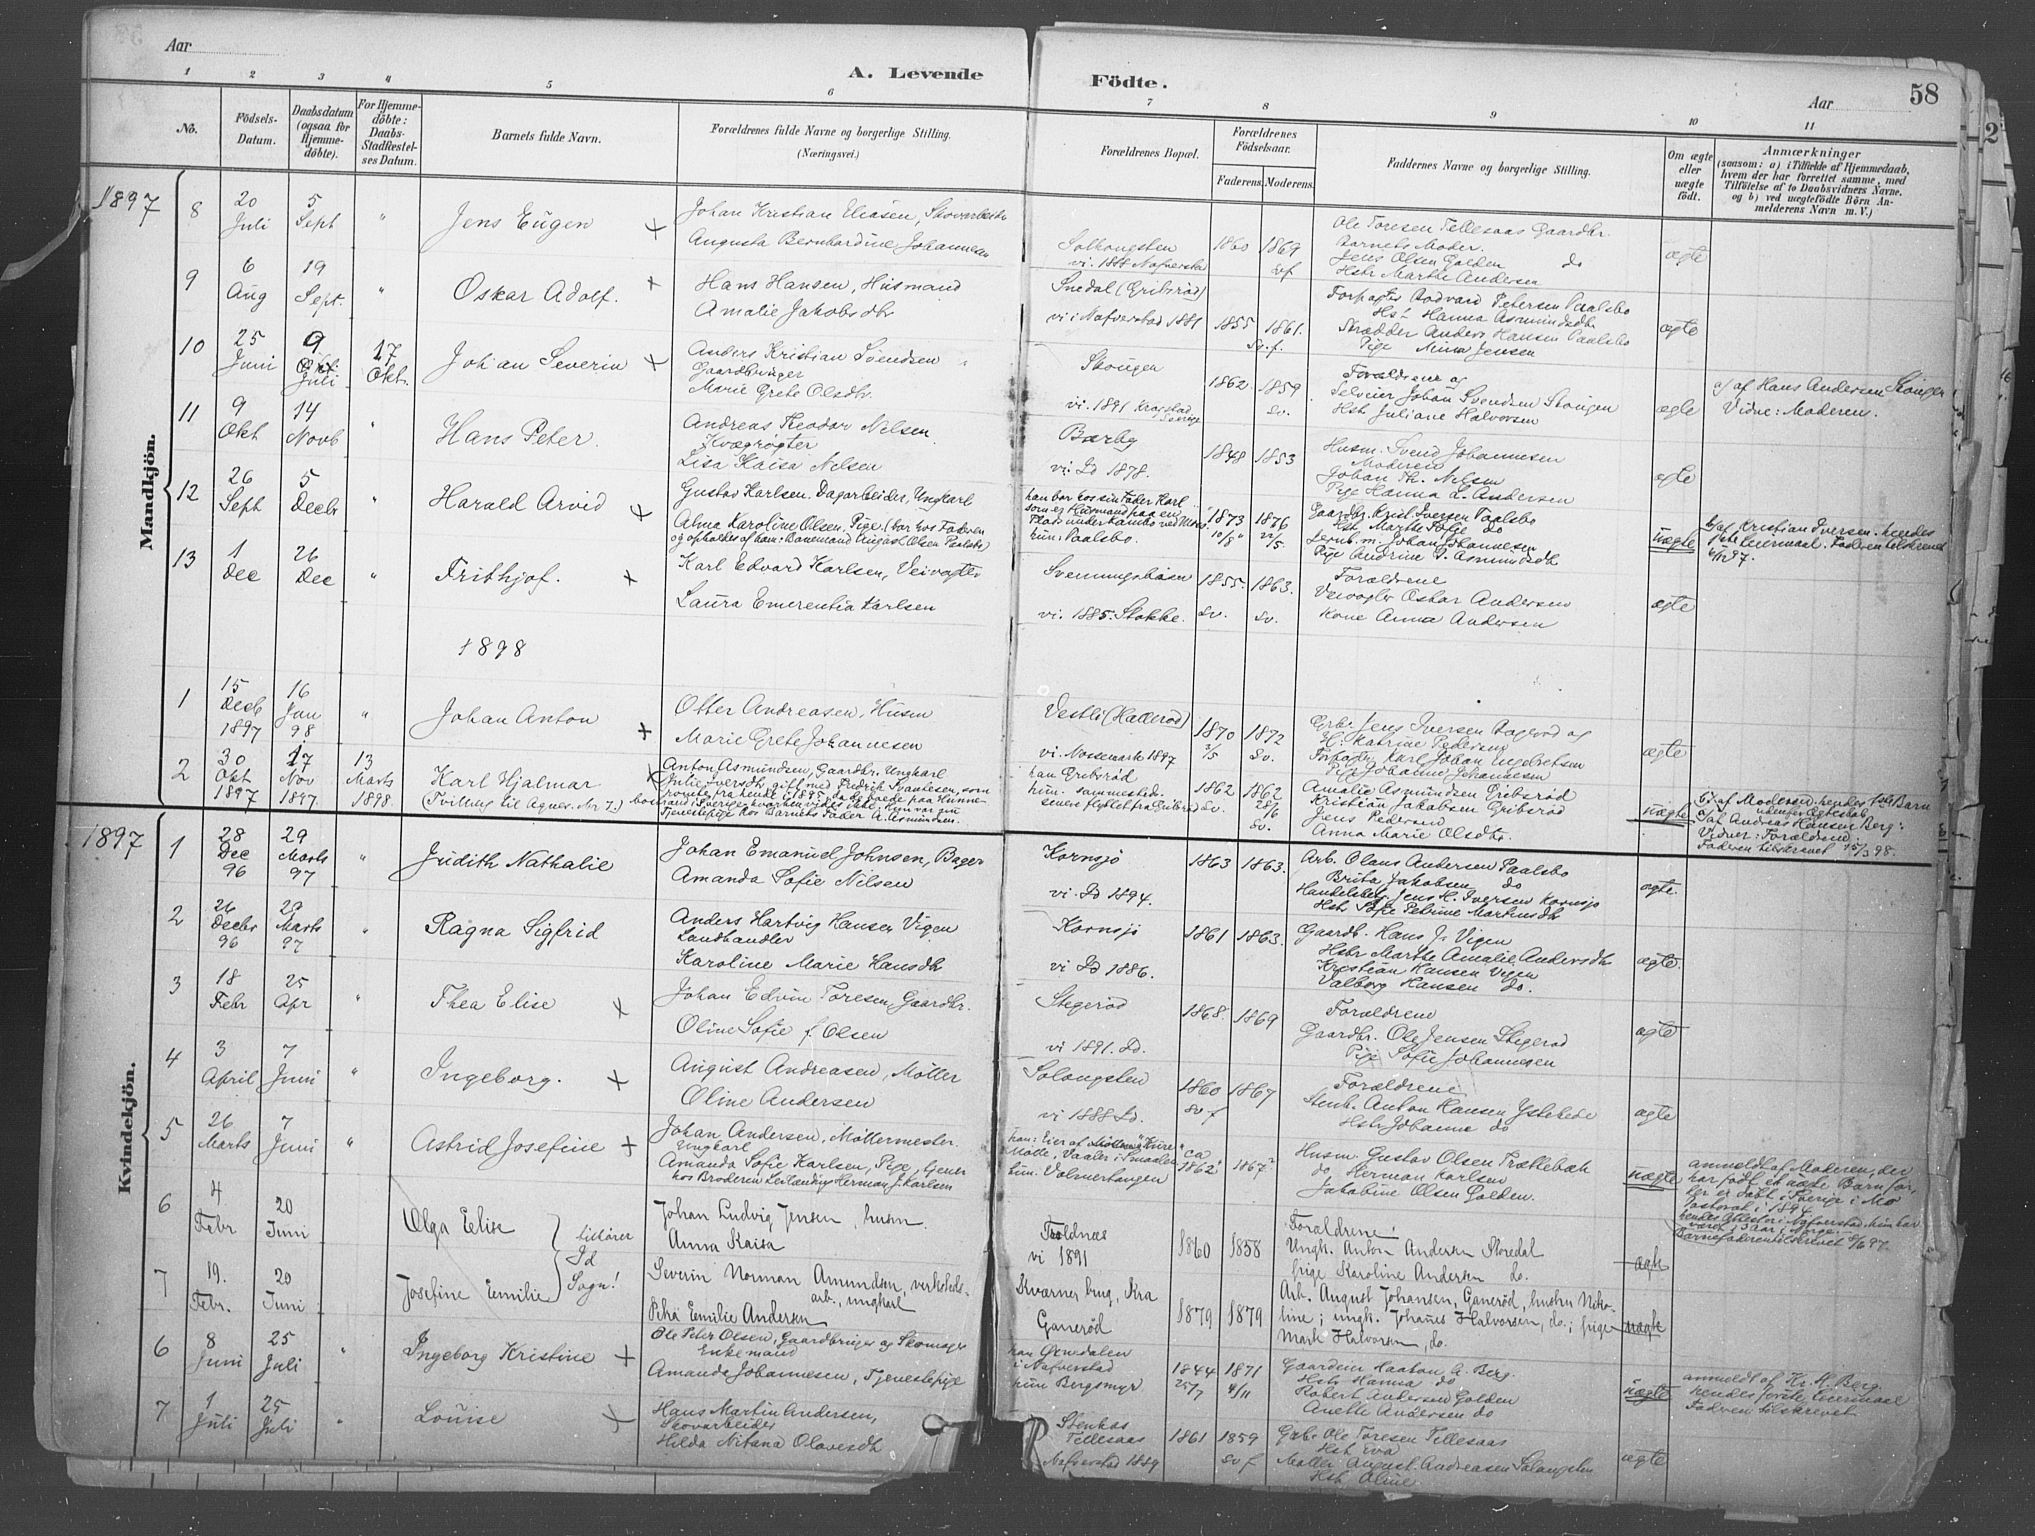 Aar
A. Levende Födte.
Aar
58
1 2 3 4 5 6 7 8 9 10 11
No.
Födsels-Datum.
Daabsdatum (ogsaa for Hjemme-döbte).
For Hjemme-döbte: Daabs-Stadfæstel-ses Datum.
Barnets fulde Navn.
Forældrenes fulde Navne og borgerlige Stilling.
(Næringsvei.)
Forældrenes Bopæl.
Forældrenes Födselsaar.
Faderens. Moderens.
Faddernes Navne og borgerlige Stilling.
Om ægte eller uægte födt.
Anmærkninger
(saasom: a) i Tilfælde af Hjemmedaab,
hvem der har forrettet samme, med
Tilföielse af to Daabsvidners Navne.
og b) ved uægtefödte Börn An-
melderens Navn m. V.)
Mandkjön.
1897
8 20 Juli 5 Sept " Jens Eugen +
Johan Kristian Eliasen, Skovarbeider
Augusta Bernhardine Johannesen
vi. 1888 Nafverstad
1860 1869 Sv f
Ole Toresen Tellesaas Gaardbr.
Barnets Moder.
Jens Olsen Golden do
Hstr Marthe Andersen
ægte
9 6 Aug 19 Sept. " Oskar Adolf. +
Hans Hansen, Husmand
Amalie Jakobsdtr
Snedal (Gribsröd)
vi i Nafverstad 1881
1855 1861. Sv. f.
Forpagter Bodvard Petersen Paalsbo
Hs- Hanna Asmundsdtr
Skrædder Anders Hansen Paalsbo
Pige Mina Jensen
ægte
10 25 Juni 9 Juli 17 Okt. Johan Severin +
Anders Kristian Svendsen
Gaardbruger
Marie Grete Olsdtr.
Skougen
vi. 1891 Krogstad Sverige
1862. 1859 Sv.
Forældrene og
Selveier Johan Svendsen Skougen
Hstr Juliane Halvorsen
ægte
a) af Hans Andersen Skougen
Vidne: Moderen.
11 9 Okt 14 Novb " Hans Peter.
Andreas Teodor Nilsen
Kvægrögter
Lisa Kaisa Nelsen
Bærby
vi. Id 1878.
1848 1853
Husm. Svend Johannesen
Moderen
Johan Th. Nilsen
Pige Hanna L. Andersen
ægte
12 26 Sept 5 Decbr " Harald Arvid +
Gustav Karlsen. Dagarbeider, Ungkarl
Alma Karoline Olsen, Pige, (bor hos Faderen
og opholdes af ham: Banemand August Olsen Paalsbo)
han bor hos sin Fader Karl
som er Husmand paa en
hun: Paalsbo.
1873 10/5 1876 22/5.
Gaardbr. Krist. Iversen Paalsbo
Hstr Marthe Sofie do
Jernb. m. Johan Johannesen
Pige Andrine P. Asmundsdtr
uægte
b/ af Kristian Iversen. hendes
förste Leiermaal. Faderen tilskrevet
6/11 97
13 1 Dec 26 Dec " Frithjof. +
Karl Edvard Karlsen, Veivogter
Laura Emerentia Karlsen
Svenningsbåsen
vi. 1885. Stokke.
1855. Sv. 1863. Sv.
Forældrene
Veivogter Oskar Andersen
Kone Anna Andersen
ægte
1898
1 15 Decb 1897 16 Jan 98 " Johan Anton +
Otter Andreasen, Husm
Marie Grete Johannesen
Vestli (Halleröd)
vi. Nossemark 1897
1870 2/5 1872 Sv.
Grbr Jens Iversen Bageröd og
H: Katrine Pedersen
Forpagter Karl Johan Engebretsen
Pige Johanne Johannesen
ægte
2 30 Okt 1897 17 Nov 1897. 13 Marts 1898. Karl Hjalmar +
(Tvilling til Agnes. Nr 7.)
Anton Asmundsen, Gaardbr. Ungkarl
Julie Iversdtr, gift med Fredrik Svantesen, som
römte fra hende i 1895, da de boede paa Hunne-
bostrand i Sverige, hvorhen vides ikke, hun var nu
Tjenestepige hos Barnets Fader A. Asmundsen.
han Gribsröd
hun. sammested.
senere flyttet fra Gribsröd
1862 Sv. 1862 28/6 Sv.
Amalie Asmundsen Gribsröd
Kristian Jakobsen Gribsröd
Jens Pedersen
Anna Marie Olsdtr.
uægte
b/ af Moderen. hendes 1ste Barn
udenfor Ægteskab
a/ af Andreas Hansen Berg:
Vidner: Forældrene
Faderen tilskrevet 15/3 98.
Kvindekjön.
1897
1 28 Dec 96 29 Marts 97 " Judith Nathalie
Johan Emanuel Johnsen, Bager
Amanda Sofie Nilsen
Kornsjö
vi. Id 1894.
1863 1863.
Arb. Olaus Andersen Paalsbo
Brita Jakobsen do
Handelsbetj. Jens H. Iversen Kornsjö
Hstr Sofie Petrine Martinsdtr
ægte
2 26 Decbr 96 29 Marts 97 " Ragna Sigfrid
Anders Hartvig Hansen Vigen
Landhandler
Karoline Marie Hansdtr
Kornsjö
vi Id 1886.
1861 1863.
Gaardb. Hans J. Vigen
Hstr Marthe Amalie Andersdtr
Kristian Hansen Vigen
Valborg Hansen do.
ægte.
3 18 Febr 25 Apr " Thea Elise +
Johan Edvin Toresen, Gaardbr.
Oline Sofie f. Olsen
Stegeröd
vi 1891. Id.
1868. 1869
Forældrene
Gaardbr. Ole Jensen Stegeröd
Pige Sofie Johannesen
ægte
4 3 April 7 Juni " Ingeborg. +
August Andreasen, Möller
Oline Andersen
Solangsten
vi 1888 Id.
1860 Sv f 1867
Forældrene
Stenh. Anton Hansen Ystehede
Hstr Johanne do
ægte
5 26 Marts 7 Juni " Astrid Josefine +
Johan Andersen, Möllermester.
Ungkarl
Amanda Sofie Karlsen, Pige, tjener
hos Broderen Herman J. Karlsen
Mölle, Vaaler i Smaalen
hun. Valmerhaugen
ca 1862. 1867.
Husm. Gustav Olsen Træklebæk
do Herman Karlsen
Jakobine Olsen Golden.
uægte
anmeldt af Moderen, der
har födt et uægte Barn för,
der er födt i Sverige i Mo
Pastorat i 1894
hendes Attest er i Nafverstad. Hun har
været 3 aar i Norge.
Barnefaderen tilskrevet 8/6 97.
6 4 Febr 20 Juni Olga Elise
tilhører Id Sogn!
Johan Ludvig Jensen, husm.
Anna Kaisa
Foldnes
vi 1891
1860 1858
Forældrene!
Ungk. Anton Andersen Skredal
pige Karoline Andersen do.
ægte
7 19. Febr. 20 Juni Josefine Emilie
Severin Norman Amundsen, verksteds-
arb., ungkarl
Petra Emilie Andersen
Kværner brug, Kra
Ganeröd
1879 1879
Arb. August Johansen, Ganeröd, hustru Niko-
line; ungk. Johanes Halvorsen, do.; pige
Mark Halvorsen, do.
uægte
6 8 Juni 25 Juli " Ingeborg Kristine +
Ole Peter Olsen, Gaardbruger og Skomager
Enkemand
Amanda Johannesen, Tjenestepige
han Örnedalen
i Nafverstad
hun Bergsmyr
1844 25/7 1871 4/11
Gaardeier Haaton A. Berg.
Hstr Hanna do
Robert Andersen Golden
Anette Andersen do
uægte
anmeldt af Kr. H. Berg
hendes förste Leiermaal
Faderen tilskrevet
7 1 Juli 25 Juli " Louise +
Hans Martin Andersen,
Skovarbeider
Hilda Nikana Olavesdtr
Stenkas
Tellesaas
Nafverstad 1884
1861 1859 Sv f
Grbr Ole Toresen Tellesaas
Hstr Eva
Möller August Andreasen Solangsten
Hstr Oline
ægte